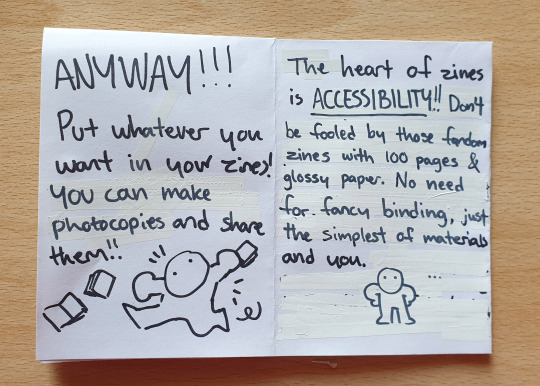 ANYWAY!!!
Put whatever you
want in your zines!
You can make
photocopies and share
them!!
The heart of zines
is ACCESSIBILITY!! Don't
be fooled by those fandom
zines with 100 pages &
glossy paper. No need
for fancy binding, just
the simplest of materials
and you.
...